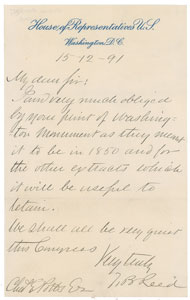 House of Representatives U.S.
Washington D.C.
15-12-91
My dear sir:
I am very much obliged
by your print of Washing-
ton Monument as they meant
it to be in 1850 and for
the other extracts which
it will be useful to
retain.
We shall all be very great
this Congress
Very truly
T B Reed
Chas E Esq